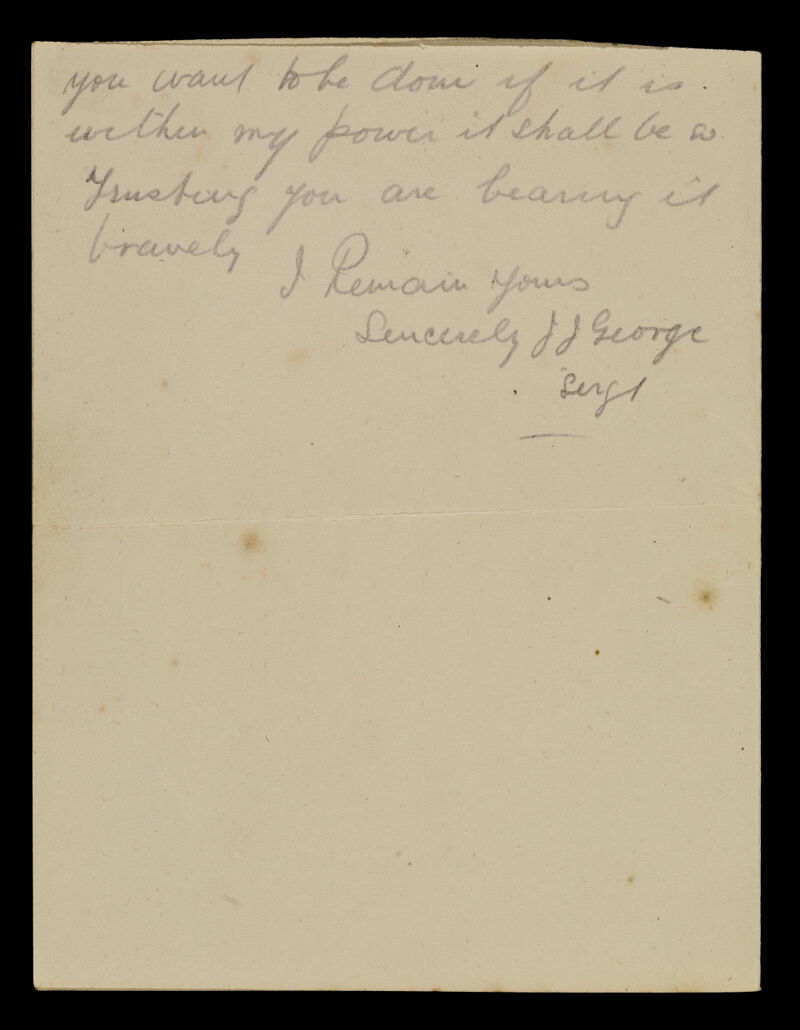 you want to be done if it is
within my power it shall be
Trusting you are bearing it
bravely
I Remain yours
Sincerely J J George
Sergt